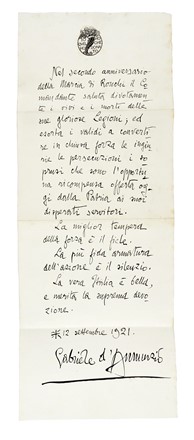 Nel secondo anniversario
della Marcia di Ronchi il Co
mandante saluta divotamen
te i vivi e i morti delle
sue gloriose Legioni, ed
esorta i validi a converti
re in chiusa forza le ingiu
rie le persecuzioni i so
prusi che sono l'opportu
na ricompensa offerta og
gi dalla Patria ai suoi
disperati servitori.
La miglior tempera
della forza è il fiele.
La più fida armatura
dell'azione è il silenzio.
La vera Italia è bella,
e merita la suprema devo
zione.
12 settembre 1921.
Gabriele d'Annunzio